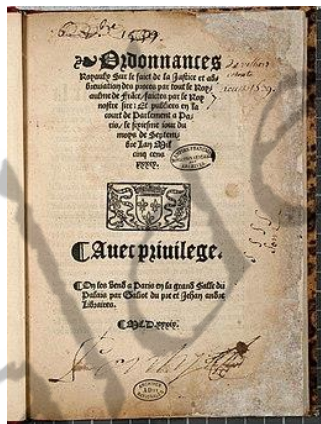 Ordonnances
Royaulx sur le faict de la Justice et ab-
breuiation des proces par tout le Roy
aulme de Frãce / faictes par le Roy
nostre sire: Et publiees en la
court de Parlement a Pa-
ris, le sixiesme iour du
moys de Septem
bre Lan Mil
cinq cens
xxxix.
Auec priuilege.
On les vend a Paris en la grand salle du
Palais par Galiot du pre et Jehan andre
Libraires.
M.D.xxxix.